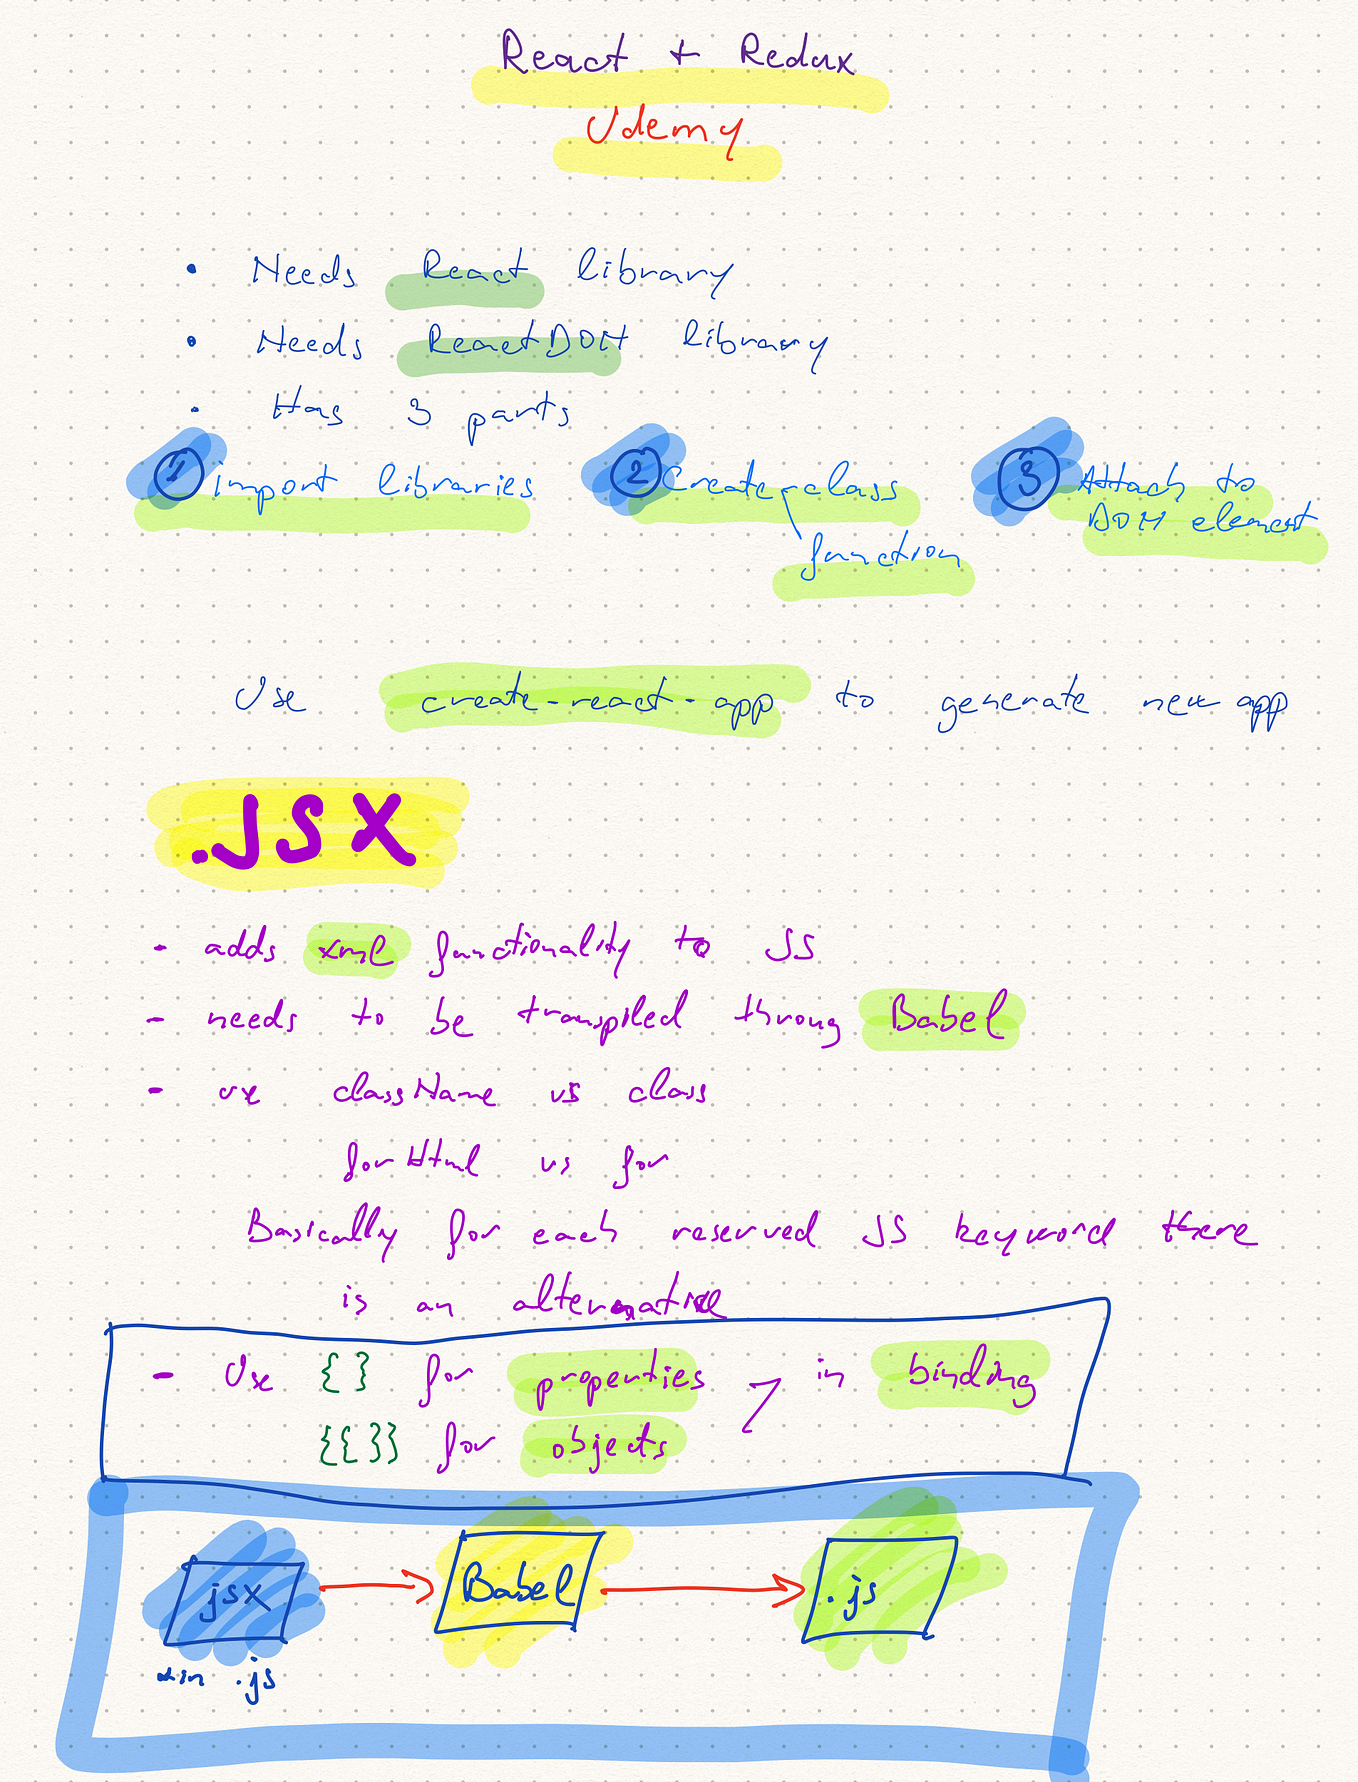 React + Redux
Udemy
• Needs React library
• Needs ReactDOM library
• Has 3 parts
1 import libraries 2 Create class 3 Attach to
DOM element
function
Use create-react-app to generate new app
.JSX
- adds xml functionality to JS
- needs to be transpiled throug Babel
- use className vs class
forHtml vs for
Basically for each reserved JS keyword there
is an alternative
- Use {} for properties in binding
{{}} for objects
jsx Babel .js
in .js